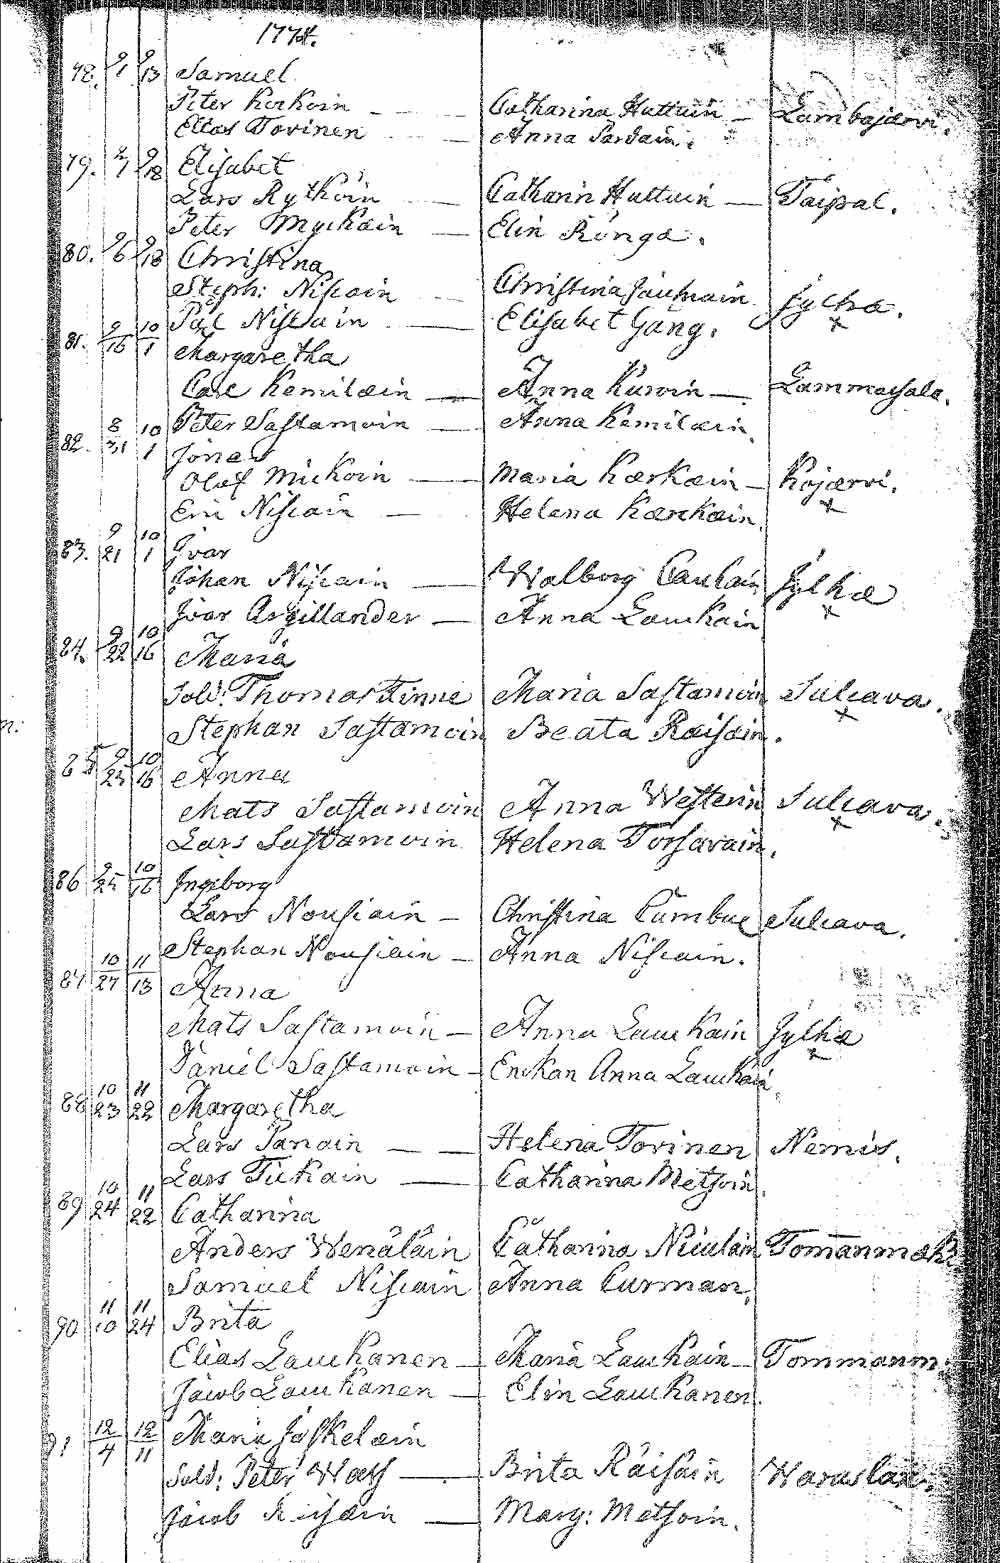 1774.
78. 9/1 9/13 Samuel
Peter Korkoin — Catharina Huttuin — Lambajærvi.
Elias Tovinen — Anna Parvain.
79. 9/7 9/18 Elisabet
Lars Rythöin — Catharin Huttuin — Taipal.
Peter Myckäin — Elin Ronga.
80. 9/6 9/18 Christina
Steph: Niscain — Christina Jauhiain Jylhæ.
Pål Niscain — Elisabet Gång. x
81. 9/16 10/1 Margaretha
Carl Kemilæin — Anna Kurvin — Lammassalo.
Peter Sastamoin — Anna Kemilæin.
82. 8/31 10/1 Jonas
Olof Mickoin — Maria Kærkæin — Kojærvi.
Eric Niscain — Helena Kærckæin. x
83. 9/21 10/1 Ivar
Johan Niscain — Walborg Lauhain Jylhæ
Ivar Argillander — Anna Lauckain x
84. 9/22 10/16 Maria
Sold: Thomas Finne Maria Sastamoin Sulcava.
Stephan Sastamoin Beata Raisæin. x
n:
85 9/25 10/16 Anna
Mats Sastamoin Anna Westerin Sulcava.
Lars Sastamoin Helena Torsavain. x
86 9/25 10/16 Ingeborg
Lars Nousiain — Christina Cumbue Sulcava.
Stephan Nousiain — Anna Niscain.
87 10/27 11/13 Anna
Mats Sastamoin — Anna Lauckain Jylhæ
Daniel Sastamoin — Enckan Anna Lauckain x
88 10/23 11/22 Margaretha
Lars Panain — — Helena Tovinen Nemis.
Lars Tickain — Catharina Metsoin.
89 10/24 11/22 Catharina
Anders Wenäläin Catharina Niculain Tomanmæki
Samuel Niscain Anna Curman.
90 11/10 11/24 Brita
Elias Lauckanen — Maria Lauckain — Tommanm.
Jacob Lauckanen — Elin Lauckanen.
91 12/4 12/11 Maria Jäskelæin
Sold: Peter Wass — Brita Räisäin Waraslax.
Jacob Reisæin — Marg: Metsoin.